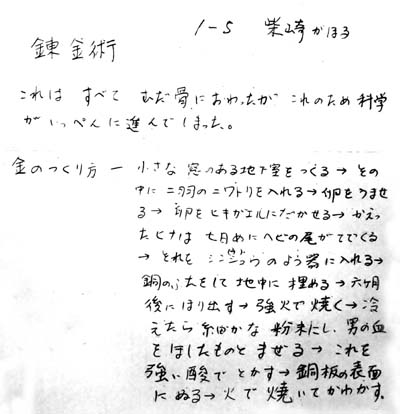 1-5 柴崎かほる
錬金術
これは すべて むだ骨におわったが これのため科学
がいっぺんに進んでしまった。
金のつくり方 ー 小さな窓のある地下室をつくる→その
中に二羽のニワトリを入れる→卵をうませ
る→卵をヒキガエルにだかせる→かえっ
たヒナは七日めにヘビの尾がでてくる
→それを のよう器に入れる→
銅のふたをして地中に埋める→六ヶ月
後にほり出す→強火で焼く→冷
えたら細かな粉末にし、男の血
をほしたものとまぜる→これを
強い酸でとかす→銅板の表面
にぬる→火で焼いてかわかす。